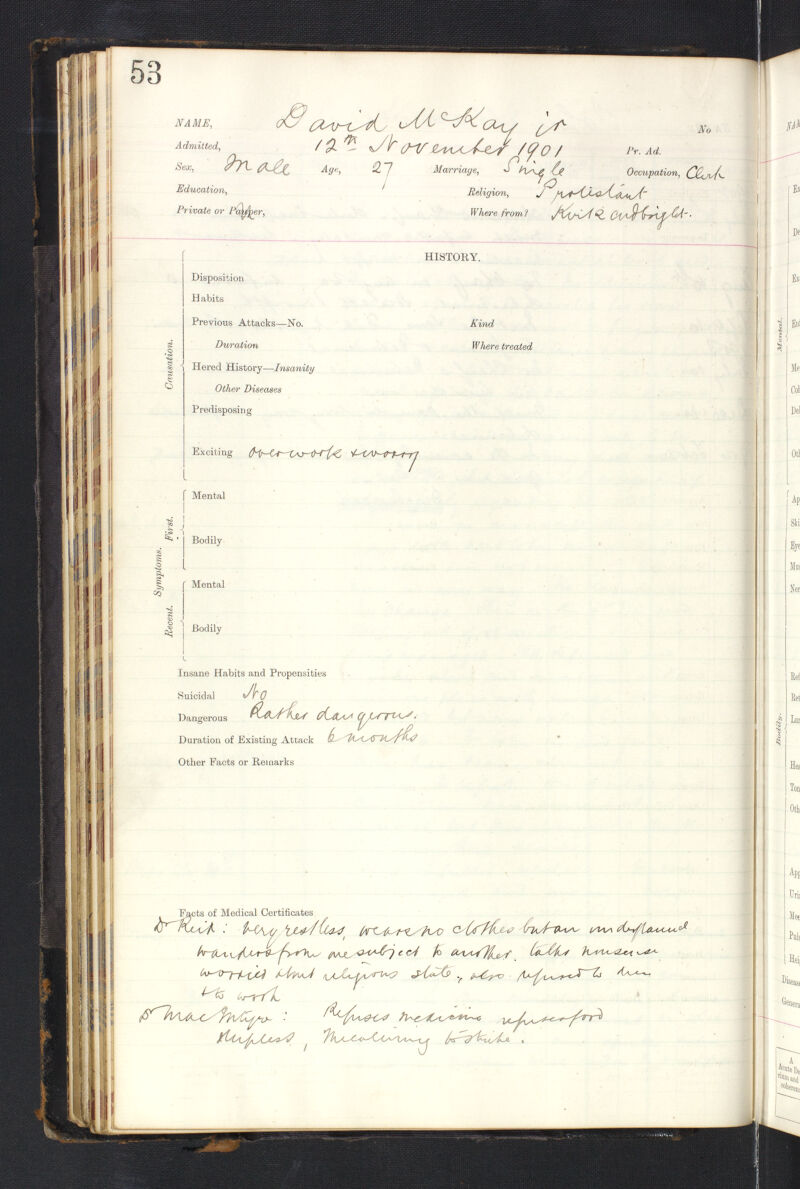 53
NAME, David McKay jr No
Admitted, 12th November 1901 Pr. Ad.
Sex, Male Age, 27 Marriage, Single Occupation, Clerk
Education, Religion, Protestant
Private or Pauper, Where from? Kirkcudbright.
HISTORY.
Disposition
Habits
Previous Attacks—No. Kind
Duration Where treated
Hered History—Insanity
Other Diseases
Predisposing
Exciting overwork & worry
Causation.
Mental
Bodily
First.
Symptoms.
Mental
Bodily
Recent.
Insane Habits and Propensities
Suicidal No
Dangerous Rather dangerous.
Duration of Existing Attack 6 months
Other Facts or Remarks
Facts of Medical Certificates
Dr Reid: Very restless, wears no clothes but an
wanders from one subject to another, talks nonsense
worried about religious state, also refused to
& to work
Dr MacIntyre: Refuses medicine refuses food
sleepless, to strike.